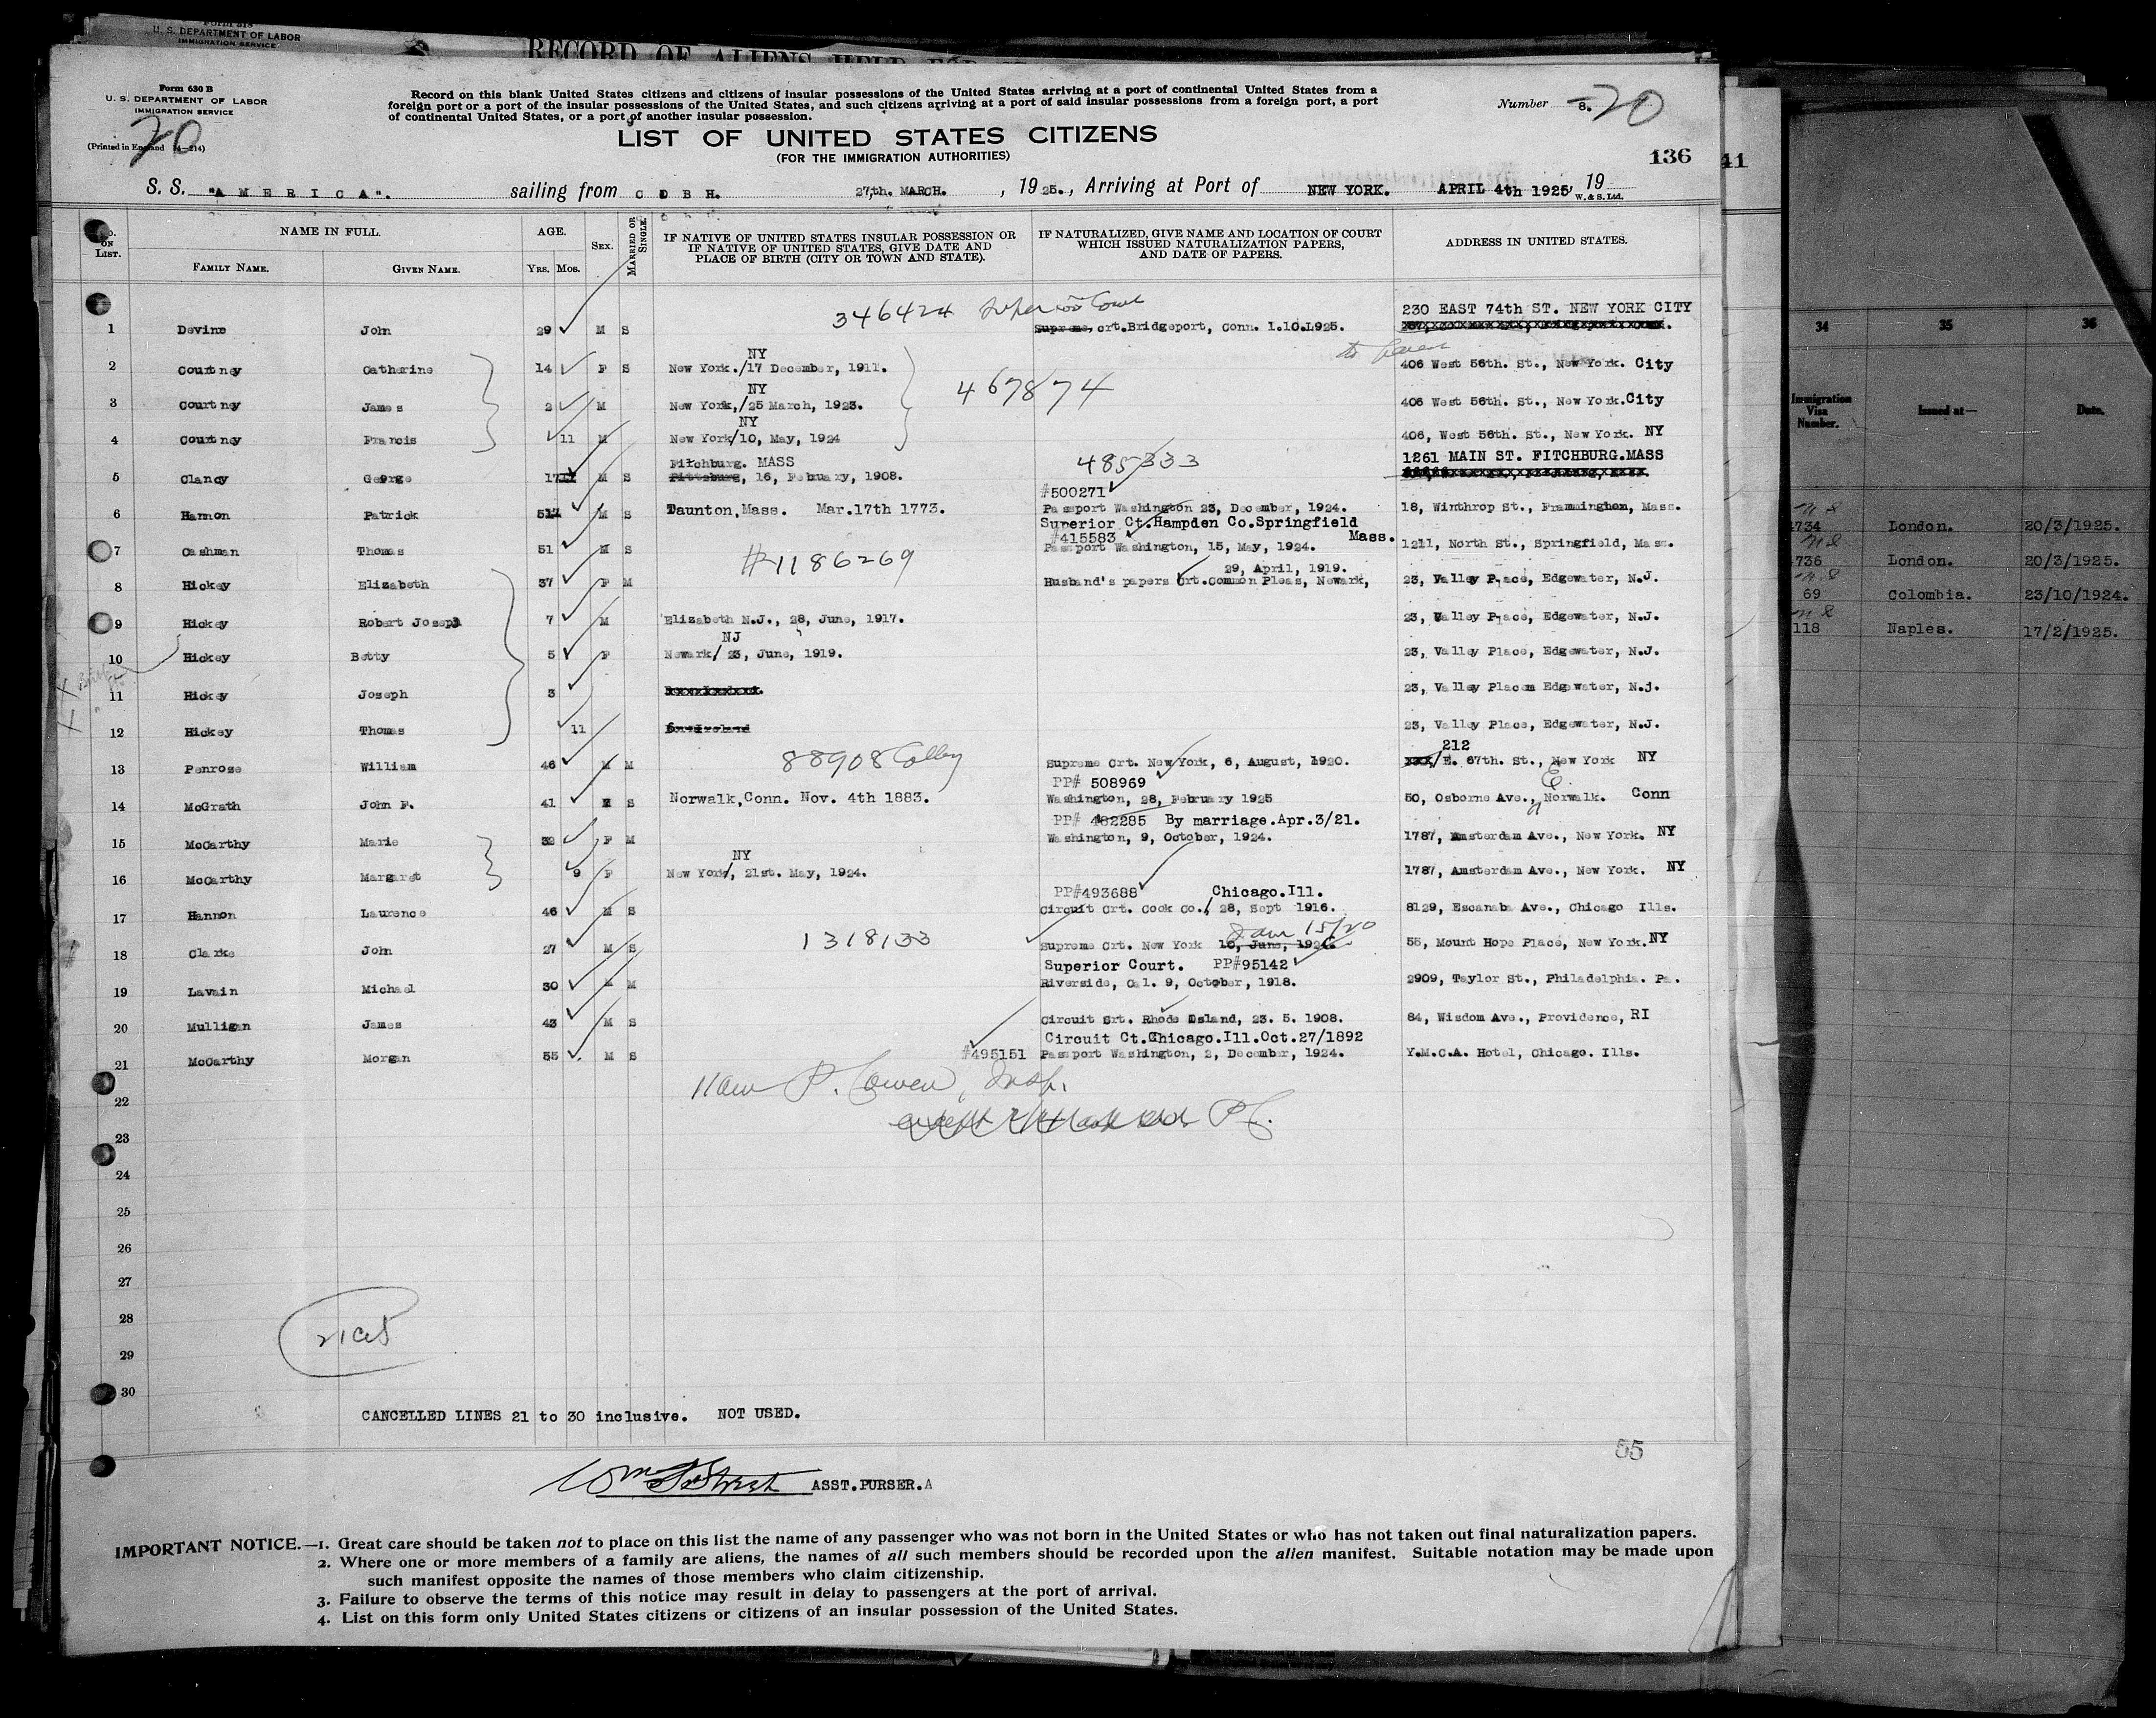 U. S. DEPARTMENT OF LABOR
IMMIGRATION SERVICE
RECORD OF ALIENS HELD FOR
Form 630 B
U. S. DEPARTMENT OF LABOR
IMMIGRATION SERVICE
20
(Printed in England
Record on this blank United States citizens and citizens of insular possessions of the United States arriving at a port of continental United States from a
foreign port or a port of the insular possessions of the United States, and such citizens arriving at a port of said insular possessions from a foreign port, a port
of continental United States, or a port of another insular possession.
Number 8. 20
LIST OF UNITED STATES CITIZENS
(FOR THE IMMIGRATION AUTHORITIES)
136
41
S. S. "AMERICA". sailing from COBH. 27,th. MARCH. , 1925., Arriving at Port of NEW YORK. APRIL 4th 1925, 19
W. & S. Ltd.
No. ON LIST.
NAME IN FULL.
FAMILY NAME. GIVEN NAME.
AGE.
YRS. MOS.
SEX.
MARRIED OR SINGLE.
IF NATIVE OF UNITED STATES INSULAR POSSESSION OR
IF NATIVE OF UNITED STATES, GIVE DATE AND
PLACE OF BIRTH (CITY OR TOWN AND STATE).
IF NATURALIZED, GIVE NAME AND LOCATION OF COURT
WHICH ISSUED NATURALIZATION PAPERS,
AND DATE OF PAPERS.
ADDRESS IN UNITED STATES.
346424 Superior Court 230 EAST 74th ST. NEW YORK CITY
1 Devine John 29 M S Supreme, crt.Bridgeport, Conn. 1.10.1925.
NY
2 Courtney Catherine 14 F S New York./17 December, 1911. 406 West 56th. St., New York. City
NY 467874
3 Courtney James 2 M New York,/25 March, 1923. 406 West 56th. St., New York.City
NY
4 Courtney Francis 11 M New York/10, May, 1924 406, West 56th. St., New York. NY
Fitchburg. MASS 485333 1261 MAIN ST. FITCHBURG.MASS
5 Clancy George 17 M S Pittsburg, 16, February, 1908.
#500271
6 Hannon Patrick 51 M S Taunton,Mass. Mar.17th 1773. Passport Washington 23, December, 1924. 18, Winthrop St., Framingham, Mass.
Superior Ct.Hampden Co.Springfield
#415583 Mass.
7 Cashman Thomas 51 M S Passport Washington, 15, May, 1924. 1211, North St., Springfield, Mass.
#1186269 29, April, 1919.
8 Hickey Elizabeth 37 F M Husband's papers Crt.Common Pleas, Newark, 23, Valley Place, Edgewater, N.J.
9 Hickey Robert Joseph 7 M Elizabeth N.J., 28, June, 1917. 23, Valley Place, Edgewater, N.J.
NJ
10 Hickey Betty 5 F Newark/ 23, June, 1919. 23, Valley Place, Edgewater, N.J.
11 Hickey Joseph 3 23, Valley Placem Edgewater, N.j.
12 Hickey Thomas 11 23, Valley Place, Edgewater, N.J.
88908 Colby 212
13 Penrose William 46 M M Supreme Crt. New York, 6, August, 1920. xxx/E. 67th. St., New York NY
PP# 508969
14 McGrath John F. 41 M S Norwalk,Conn. Nov. 4th 1883. Washington, 28, February 1925 50, Osborne Ave., Norwalk. Conn
PP# 482285 By marriage.Apr.3/21.
15 McCarthy Marie 32 F M Washington, 9, October, 1924. 1787, Amsterdam Ave., New York. NY
NY
16 McCarthy Margaret 9 F New York/, 21st. May, 1924. 1787, Amsterdam Ave., New York. NY
PP#493688 Chicago.Ill.
17 Hannon Laurence 46 M S Circuit Crt. Cook Co., 28, Sept 1916. 8129, Escanaba Ave., Chicago Ills.
1318133 Jan 15/20
18 Clarke John 27 M S Supreme Crt. New York 10, June, 1920. 55, Mount Hope Place, New York.NY
Superior Court. PP#95142
19 Lavain Michael 30 M M Riverside, Cal. 9, October, 1918. 2909, Taylor St., Philadelphia. Pa.
20 Mulligan James 43 M S Circuit Crt. Rhode Island, 23. 5. 1908. 84, Wisdom Ave., Providence, RI
Circuit Ct.Chicago.Ill.Oct.27/1892
21 McCarthy Morgan 55 M S #495151 Passport Washington, 2, December, 1924. Y.M.C.A. Hotel, Chicago. Ills.
P. Cowen, Insp.
22
23
24
25
26
27
28
29
30
CANCELLED LINES 21 to 30 inclusive. NOT USED.
55
ASST.PURSER.
IMPORTANT NOTICE.—1. Great care should be taken not to place on this list the name of any passenger who was not born in the United States or who has not taken out final naturalization papers.
2. Where one or more members of a family are aliens, the names of all such members should be recorded upon the alien manifest. Suitable notation may be made upon
such manifest opposite the names of those members who claim citizenship.
3. Failure to observe the terms of this notice may result in delay to passengers at the port of arrival.
4. List on this form only United States citizens or citizens of an insular possession of the United States.
34 35 36
Immigration Visa Number. Issued at— Date.
734 London. 20/3/1925.
736 London. 20/3/1925.
69 Colombia. 23/10/1924.
118 Naples. 17/2/1925.